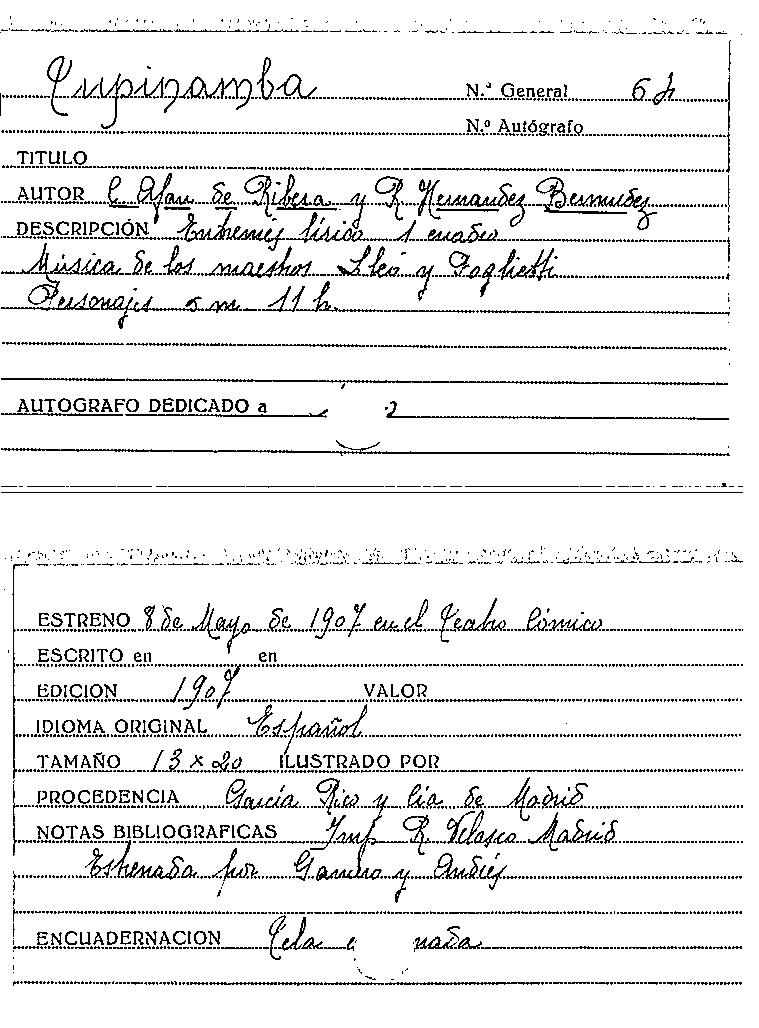 Tupinamba
N.º General 64
N.º Autógrafo
TITULO
AUTOR C Afan de Ribera y R Hernandez Bermudez
DESCRIPCIÓN Entremés lírico 1 cuadro
Música de los maestros Lleó y Foglietti
Personajes 5 m 11 h.
AUTOGRAFO DEDICADO a
ESTRENO 8 de Mayo de 1907 en el Teatro Cómico
ESCRITO en en
EDICION 1907 VALOR
IDIOMA ORIGINAL Español
TAMAÑO 13 x 20 ILUSTRADO POR
PROCEDENCIA García Rico y Cía de Madrid
NOTAS BIBLIOGRAFICAS Imp R Velasco Madrid
Estrenada por Gamero y Andrés
ENCUADERNACION Tela